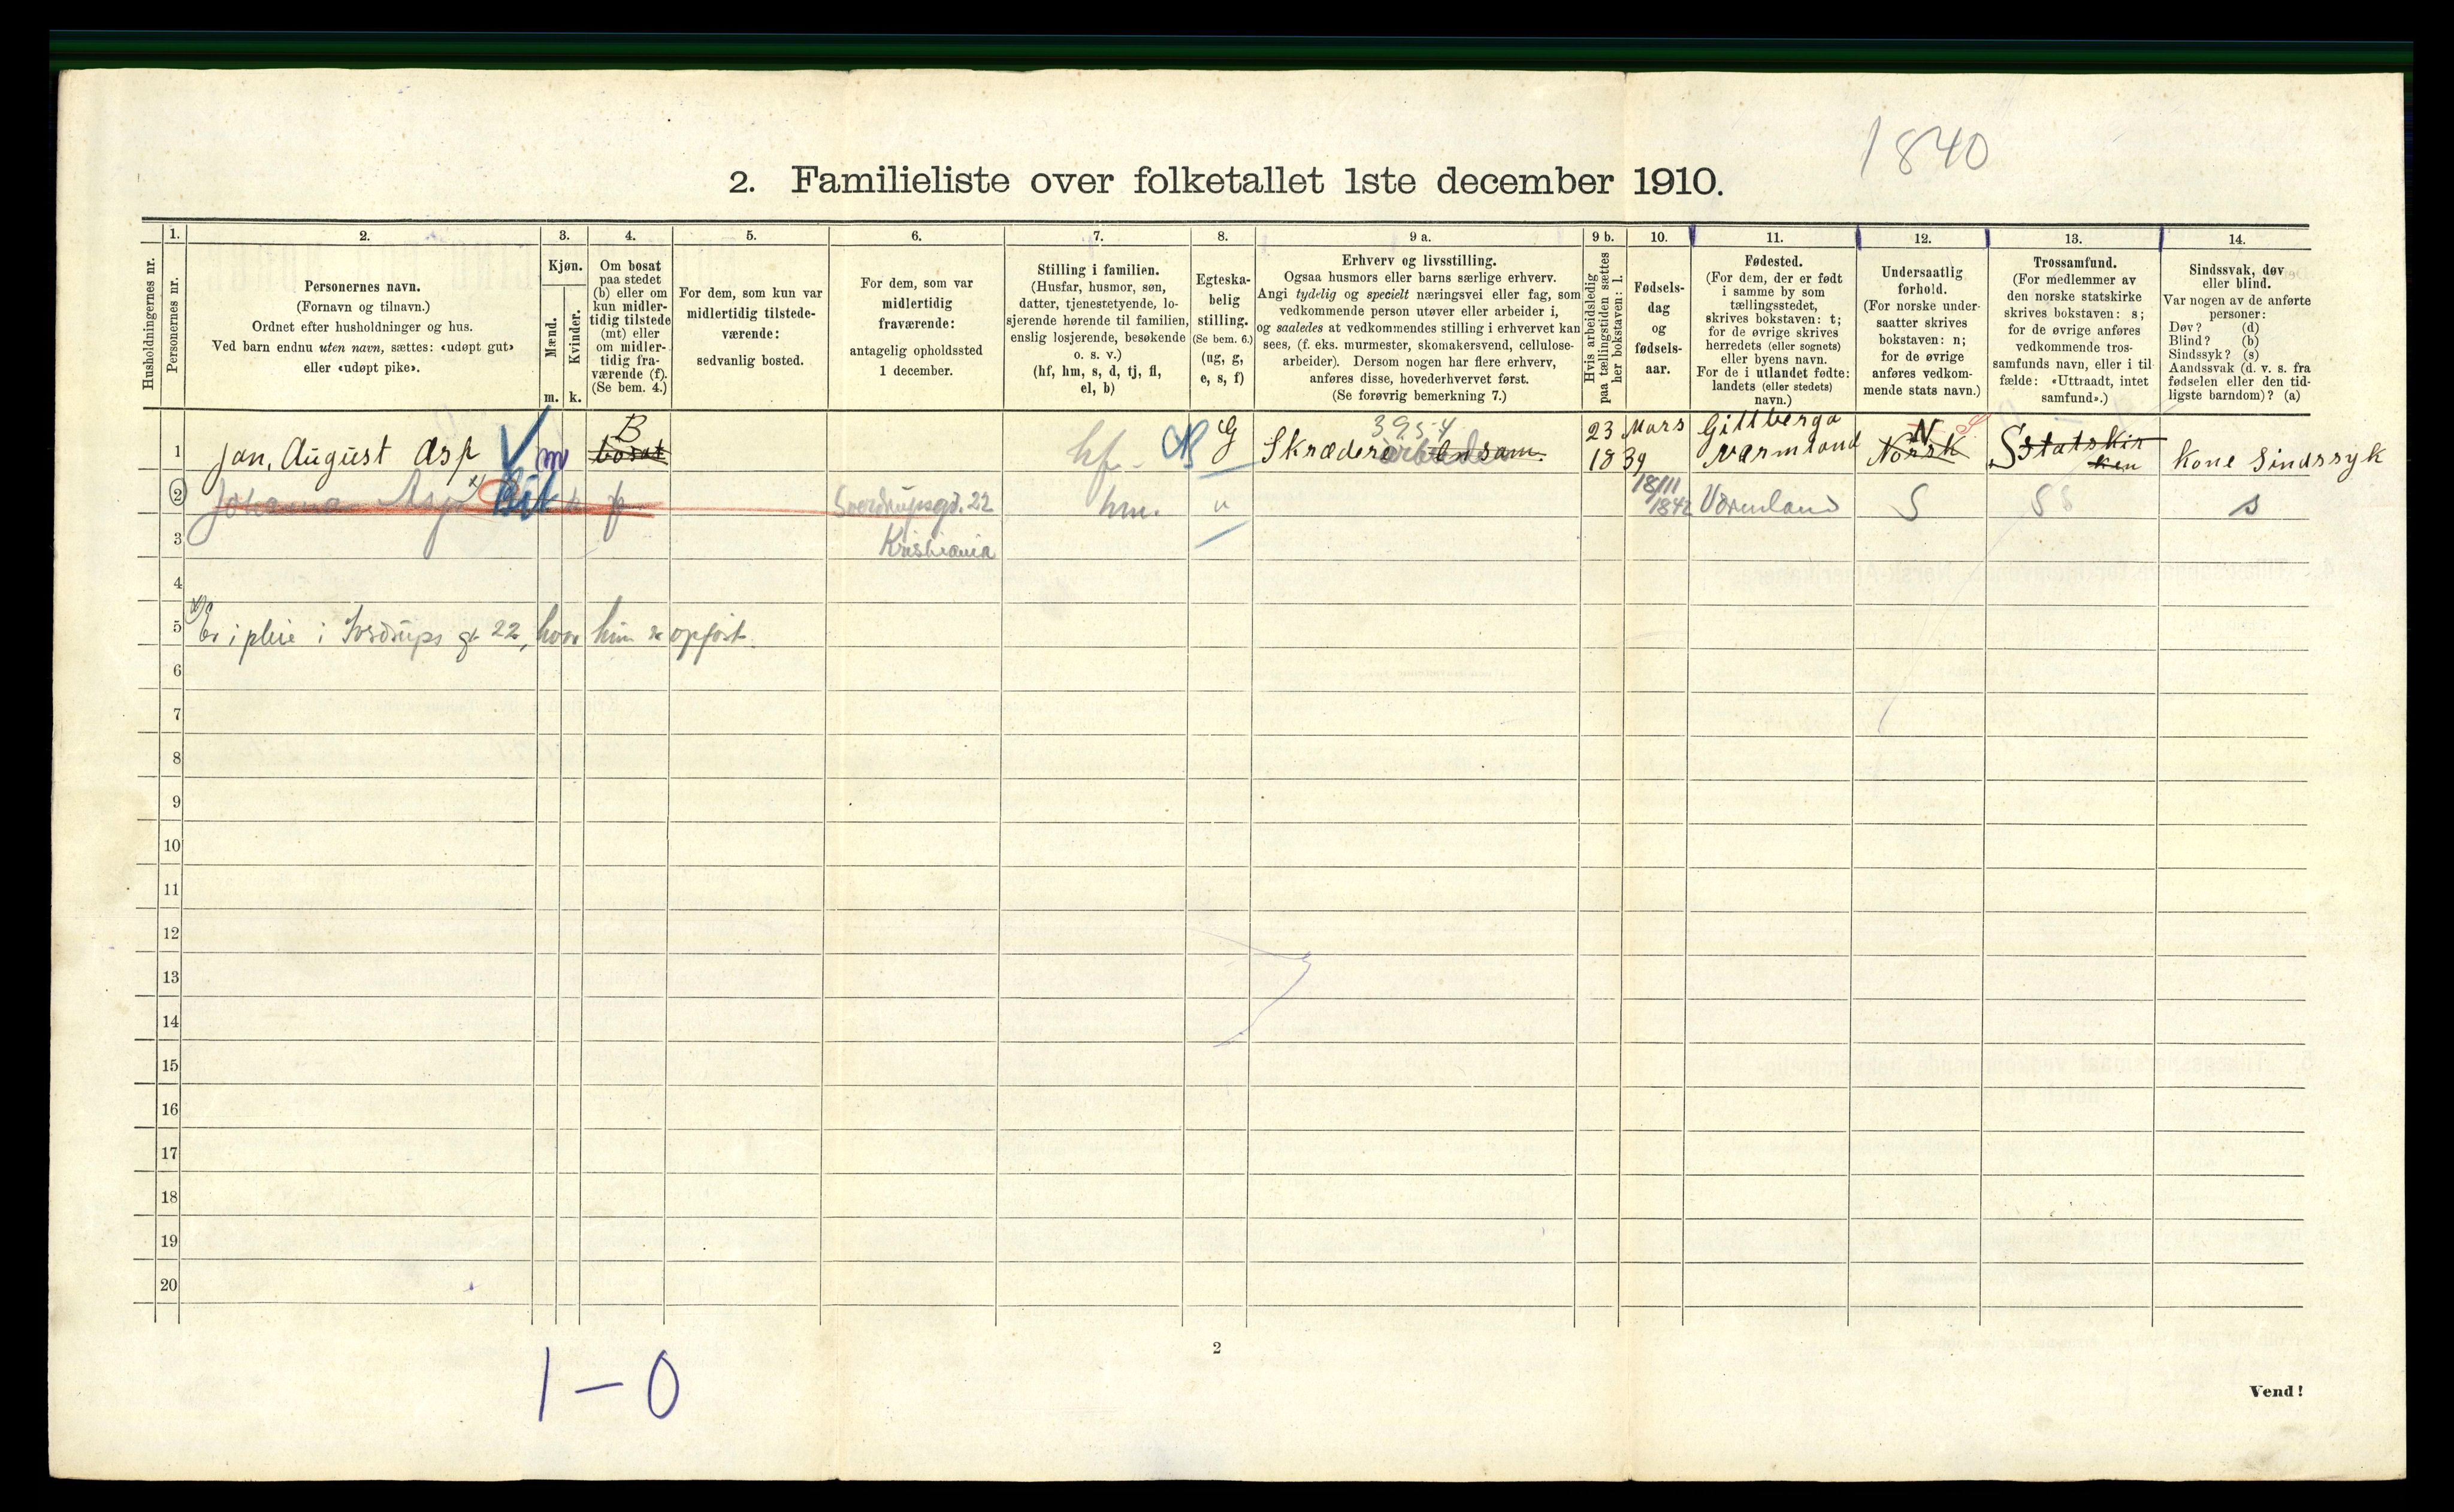 1840
2. Familieliste over folketallet 1ste december 1910.
1. 2. 3. 4. 5. 6. 7. 8. 9 a. 9 b. 10. 11. 12. 13. 14.
Husholdningernes nr.
Personernes nr.
Personernes navn.
(Fornavn og tilnavn.)
Ordnet efter husholdninger og hus.
Ved barn endnu uten navn, sættes: «udøpt gut»
eller «udøpt pike».
Kjøn.
Mænd.
Kvinder.
m. k.
Om bosat
paa stedet
(b) eller om
kun midler-
tidig tilstede
(mt) eller
om midler-
tidig fra-
værende (f).
(Se bem. 4.)
For dem, som kun var
midlertidig tilstede-
værende:
sedvanlig bosted.
For dem, som var
midlertidig
fraværende:
antagelig opholdssted
1 december.
Stilling i familien.
(Husfar, husmor, søn,
datter, tjenestetyende, lo-
sjerende hørende til familien,
enslig losjerende, besøkende
o. s. v.)
(hf, hm, s, d, tj, fl,
el, b)
Egteska-
belig
stilling.
(Se bem. 6.)
(ug, g,
e, s, f)
Erhverv og livsstilling.
Ogsaa husmors eller barns særlige erhverv.
Angi tydelig og specielt næringsvei eller fag, som
vedkommende person utøver eller arbeider i,
og saaledes at vedkommendes stilling i erhvervet kan
sees, (f. eks. murmester, skomakersvend, cellulose-
arbeider). Dersom nogen har flere erhverv,
anføres disse, hovederhvervet først.
(Se forøvrig bemerkning 7.)
Hvis arbeidsledig
paa tællingstiden sættes
her bokstaven: l.
Fødsels-
dag
og
fødsels-
aar.
Fødested.
(For dem, der er født
i samme by som
tællingsstedet,
skrives bokstaven: t;
for de øvrige skrives
herredets (eller sognets)
eller byens navn.
For de i utlandet fødte:
landets (eller stedets)
navn.)
Undersaatlig
forhold.
(For norske under-
saatter skrives
bokstaven: n;
for de øvrige
anføres vedkom-
mende stats navn.)
Trossamfund.
(For medlemmer av
den norske statskirke
skrives bokstaven: s;
for de øvrige anføres
vedkommende tros-
samfunds navn, eller i til-
fælde: «Uttraadt, intet
samfund».)
Sindssvak, døv
eller blind.
Var nogen av de anførte
personer:
Døv? (d)
Blind? (b)
Sindssyk? (s)
Aandssvak (d. v. s. fra
fødselen eller den tid-
ligste barndom)? (a)
B 3954 23 Mars Gillberga N S
1 Jan, August Asp m bosat hf. G Skrædere Ensam. 1839 Værmland Norsk S Statskir
ken Kone Sindssyk
2 Johanna Asp x) k f Sverdrupsgd. 22 hm. " 18/11 1842 Värmland S S S s
3 Kristiania
4
x)
5 Er i pleie i Sverdrups gt 22, hvor hun er opført.
6
7
8
9
10
11
12
13
14
15
16
17
18
19
20
2
1 – 0
Vend!